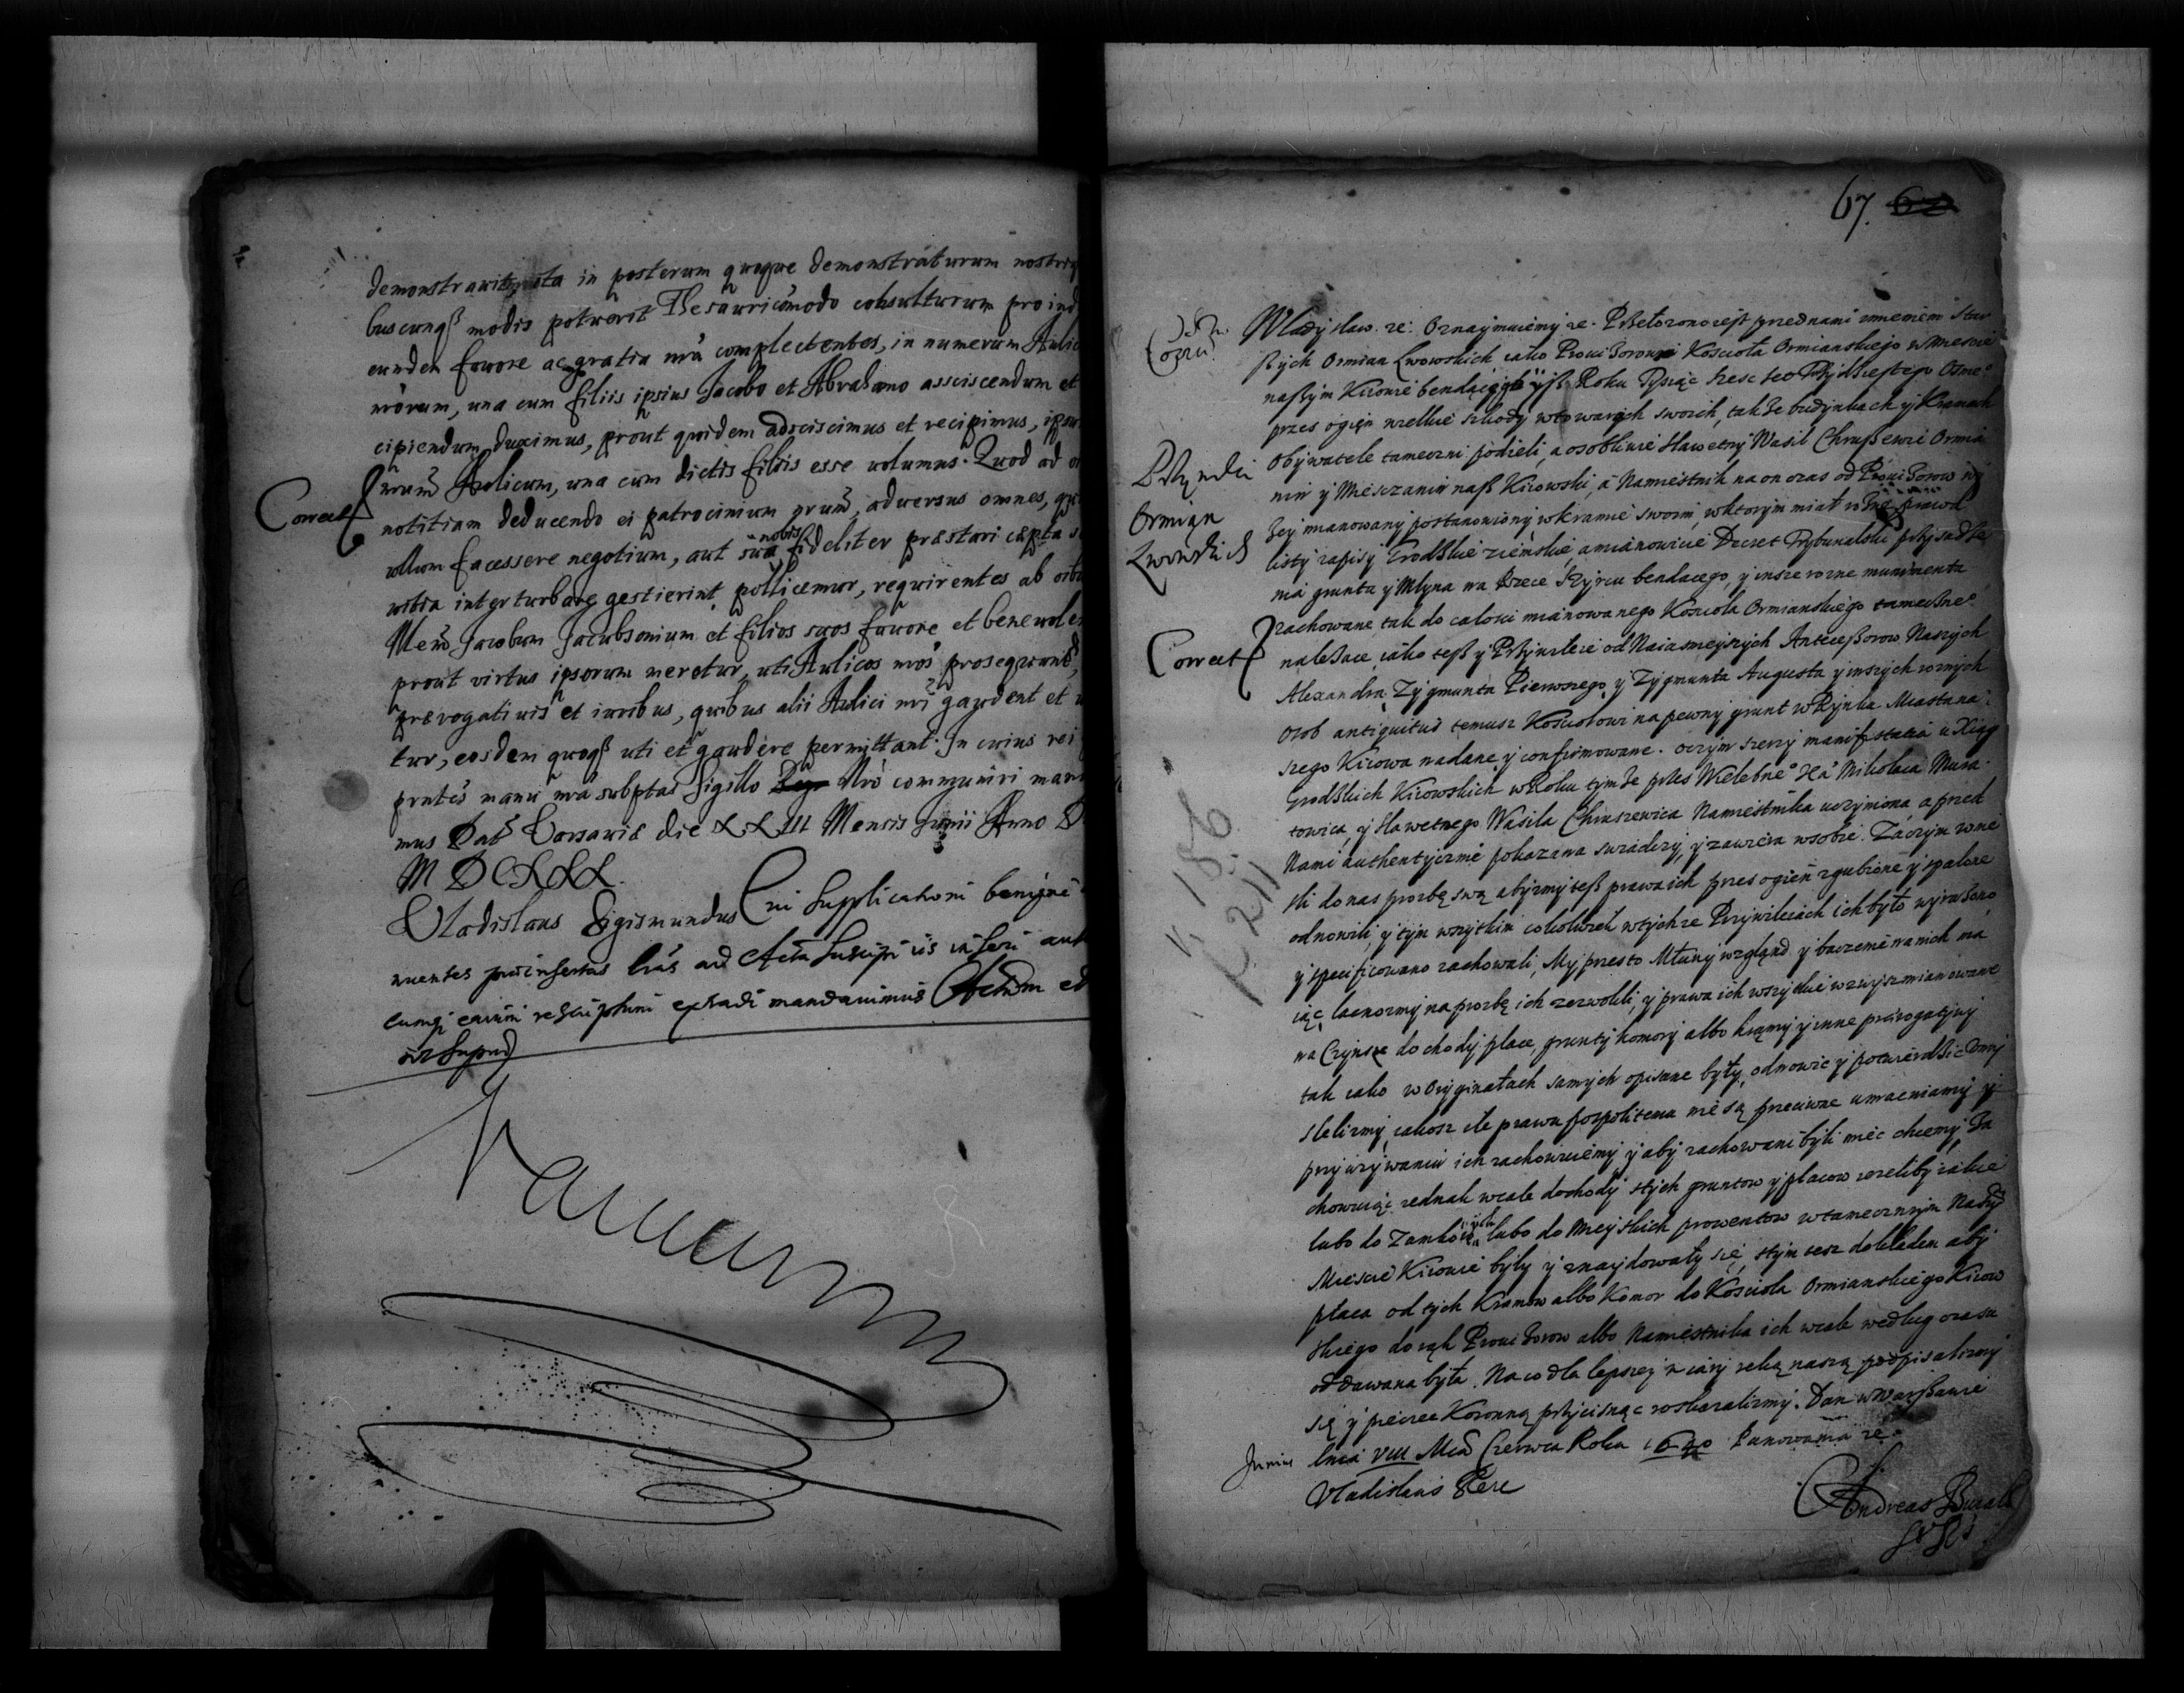 demonstravit, ita in posterum quoque demonstraturum nostris
buscunqß modis potuerit Thesauri comodo consulturum proind
eundem favore ac gratia nrã complectentes, in numerum Aulic
nrõrum, una cum filiis ipsius Jacobo et Abrahamo assciscendum et
cipiendum duximus, prout quidem adsciscimus et recipimus, ipsum
nrum Aulicum, una cum dictis filiis esse volumus. Quod ad
Correct
notitiam deducendo ei patrocinium nrum, adversus omnes, qui
ullum facessere negotium, aut sua nobis fideliter præstari cæpta
interturbare gestierint pollicemur, requirentes ab
Jacobum Jacubsonium et filios suos favore et benevolen
prout virtus ipsorum meretur, uti Aulicos nros prosequantr,
prærogativis et iuribus, quibus alii Aulici nri gaudent et
tur, eosdem quoqß uti et gaudere permittant. In cuius rei
prntes manu nra subptas Sigillo Nro communiri man
mus Dat Varsaviæ die XXIII Mensis Junii Anno D
M D C X X X X.
Vladislaus Sigismundus Cui supplicationi benigne
nuentes præinsertas lras ad Acta suscipi iis inseri aut
cumq eorum rescriptum extradi mandavimus Actum et
ut supra
67. 62
Wladyslaw. rc: Oznaymuiemy rc. Przełozono iest przed nami imieniem Star
szych Ormian Lwowskich iako Prouizorow Koscioła Ormianskiego w Miescie
naszym Kiiowie bendącego isz Roku Tysiąc szesc set Trzydziestego Osme°
przes ogięn wielkie szkody w towarach swoich, takze budynkach y Kramach
Przynależ
Ormian
Lwowskich
Obywatele tameczni podieli, a osobliwie Sławetny Wasil Chruszewic Ormia
nin y Miesczanin nasz Kiiowski, a Namiestnik na on czas od Prouizorow
zey mianowany postanowiony w kramie swoim, w ktorym miał rozne prawa
listy zapisy Grodzkie zięmskie, a mianowicie Decret Trybunalski przysądze
nia gruntu y Młyna na Rzece Syrcu bendacego, y insze rozne munimenta
Correct
zachowane, tak do całosci mianowanego Kosciola Ormianskiego tameczne°
nalezące, iako tesz y Przywileie od Naiasnieyszych Antecessorow Naszych
Alexandra, Zygmunta Pierwszego, y Zygmunta Augusta y inszych roznych
Osob antiquitus temusz Kosciołowi na pewny grunt w Rynku Miasta na
szego Kiiowa nadane y confirmowane. o czym szerzy manifestatia u Xiąg
Grodzkich Kiiowskich w Roku tymze przes Wielebne° Xa Mikołaia Mura
towica, y Sławetnego Wasila Chruszewica Namiestnika uczyniona, a przed
Nami authentyczne pokazana swiadczy, y zawiera w sobie. Zaczym wnie
sli do nas prozbę swą abyzmy tesz prawa ich przes ogień zgubione y spalone
odnowili, y tym wszytkim cokolwiek w tychze Przywileiach ich było wyrażono
y specificowano zachowali, My przes to Miluny wzgląnd y baczenie na nich ma
iąc, łacnozmy na prozbę ich zezwolili, y prawa ich wszytkie wzwyszmianowane
na Czynsze dochody place, grunty komory albo kramy y inne prærogatywy
tak iako w Oryginałach samych opisane były, odnowic y potwierdzic umy
slilizmy, iakosz ile prawu pospolitemu nie są przeciwne umacniamy y
przy uzywaniu ich zachowuiemy y aby zachowani byli miec chcemy Za
chowuiąc iednak wcale dochody s tych gruntow y placow iezeliby iakie
lubo do Zamkowych lubo do Mieyskich prowentow w tamecznym Naszym
Miescie Kiiowie były y znaydowały się, s tym tesz dokładem aby
płaca od tych Kramow albo Komor do Kosciola Ormianskiego Kiiow
skiego do rąk Prouizorow albo Namiestnika ich wcale według czasu
oddawana była. Na co dla lepszey wiary ręką naszą podpisalizmy
się y pieczec Koronną przycisnąc roskazalizmy. Dan w Warszawie
Junius
Dnia VIII Mca Czerwca Roku 1640 Panowania rc.
Vladislaus Rex
Andreas
K 186
K 211